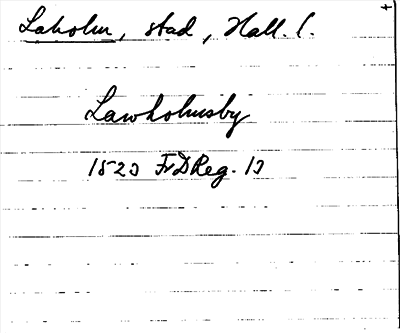 Laholm, stad, Hall. l.
Lawholmsby
1523 FrDReg. 13